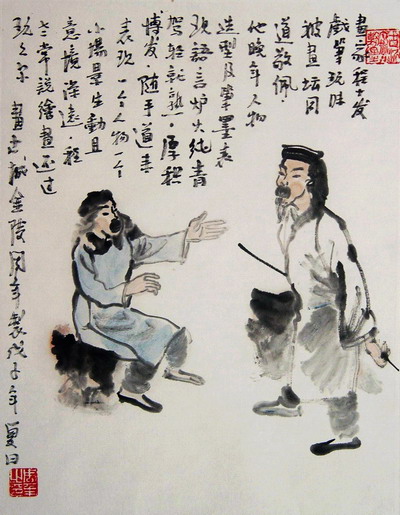 畫家程十发
戲筆玩味
被畫坛同
道敬佩
他晚年人物
造型及筆墨表
现語言炉火纯青
驾轻就熟厚积
博发随手道来
表现一个个人物一个个
小場景生動且
意境深遠程
老常说繪畫还过
金陵周年製戊子年夏日